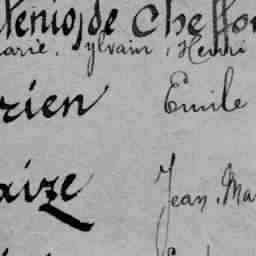 de Cheffon
arie, Sylvain, Henri
rien Emile
aize Jean, Ma